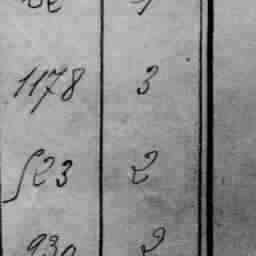 1178 3
523 2
930 2